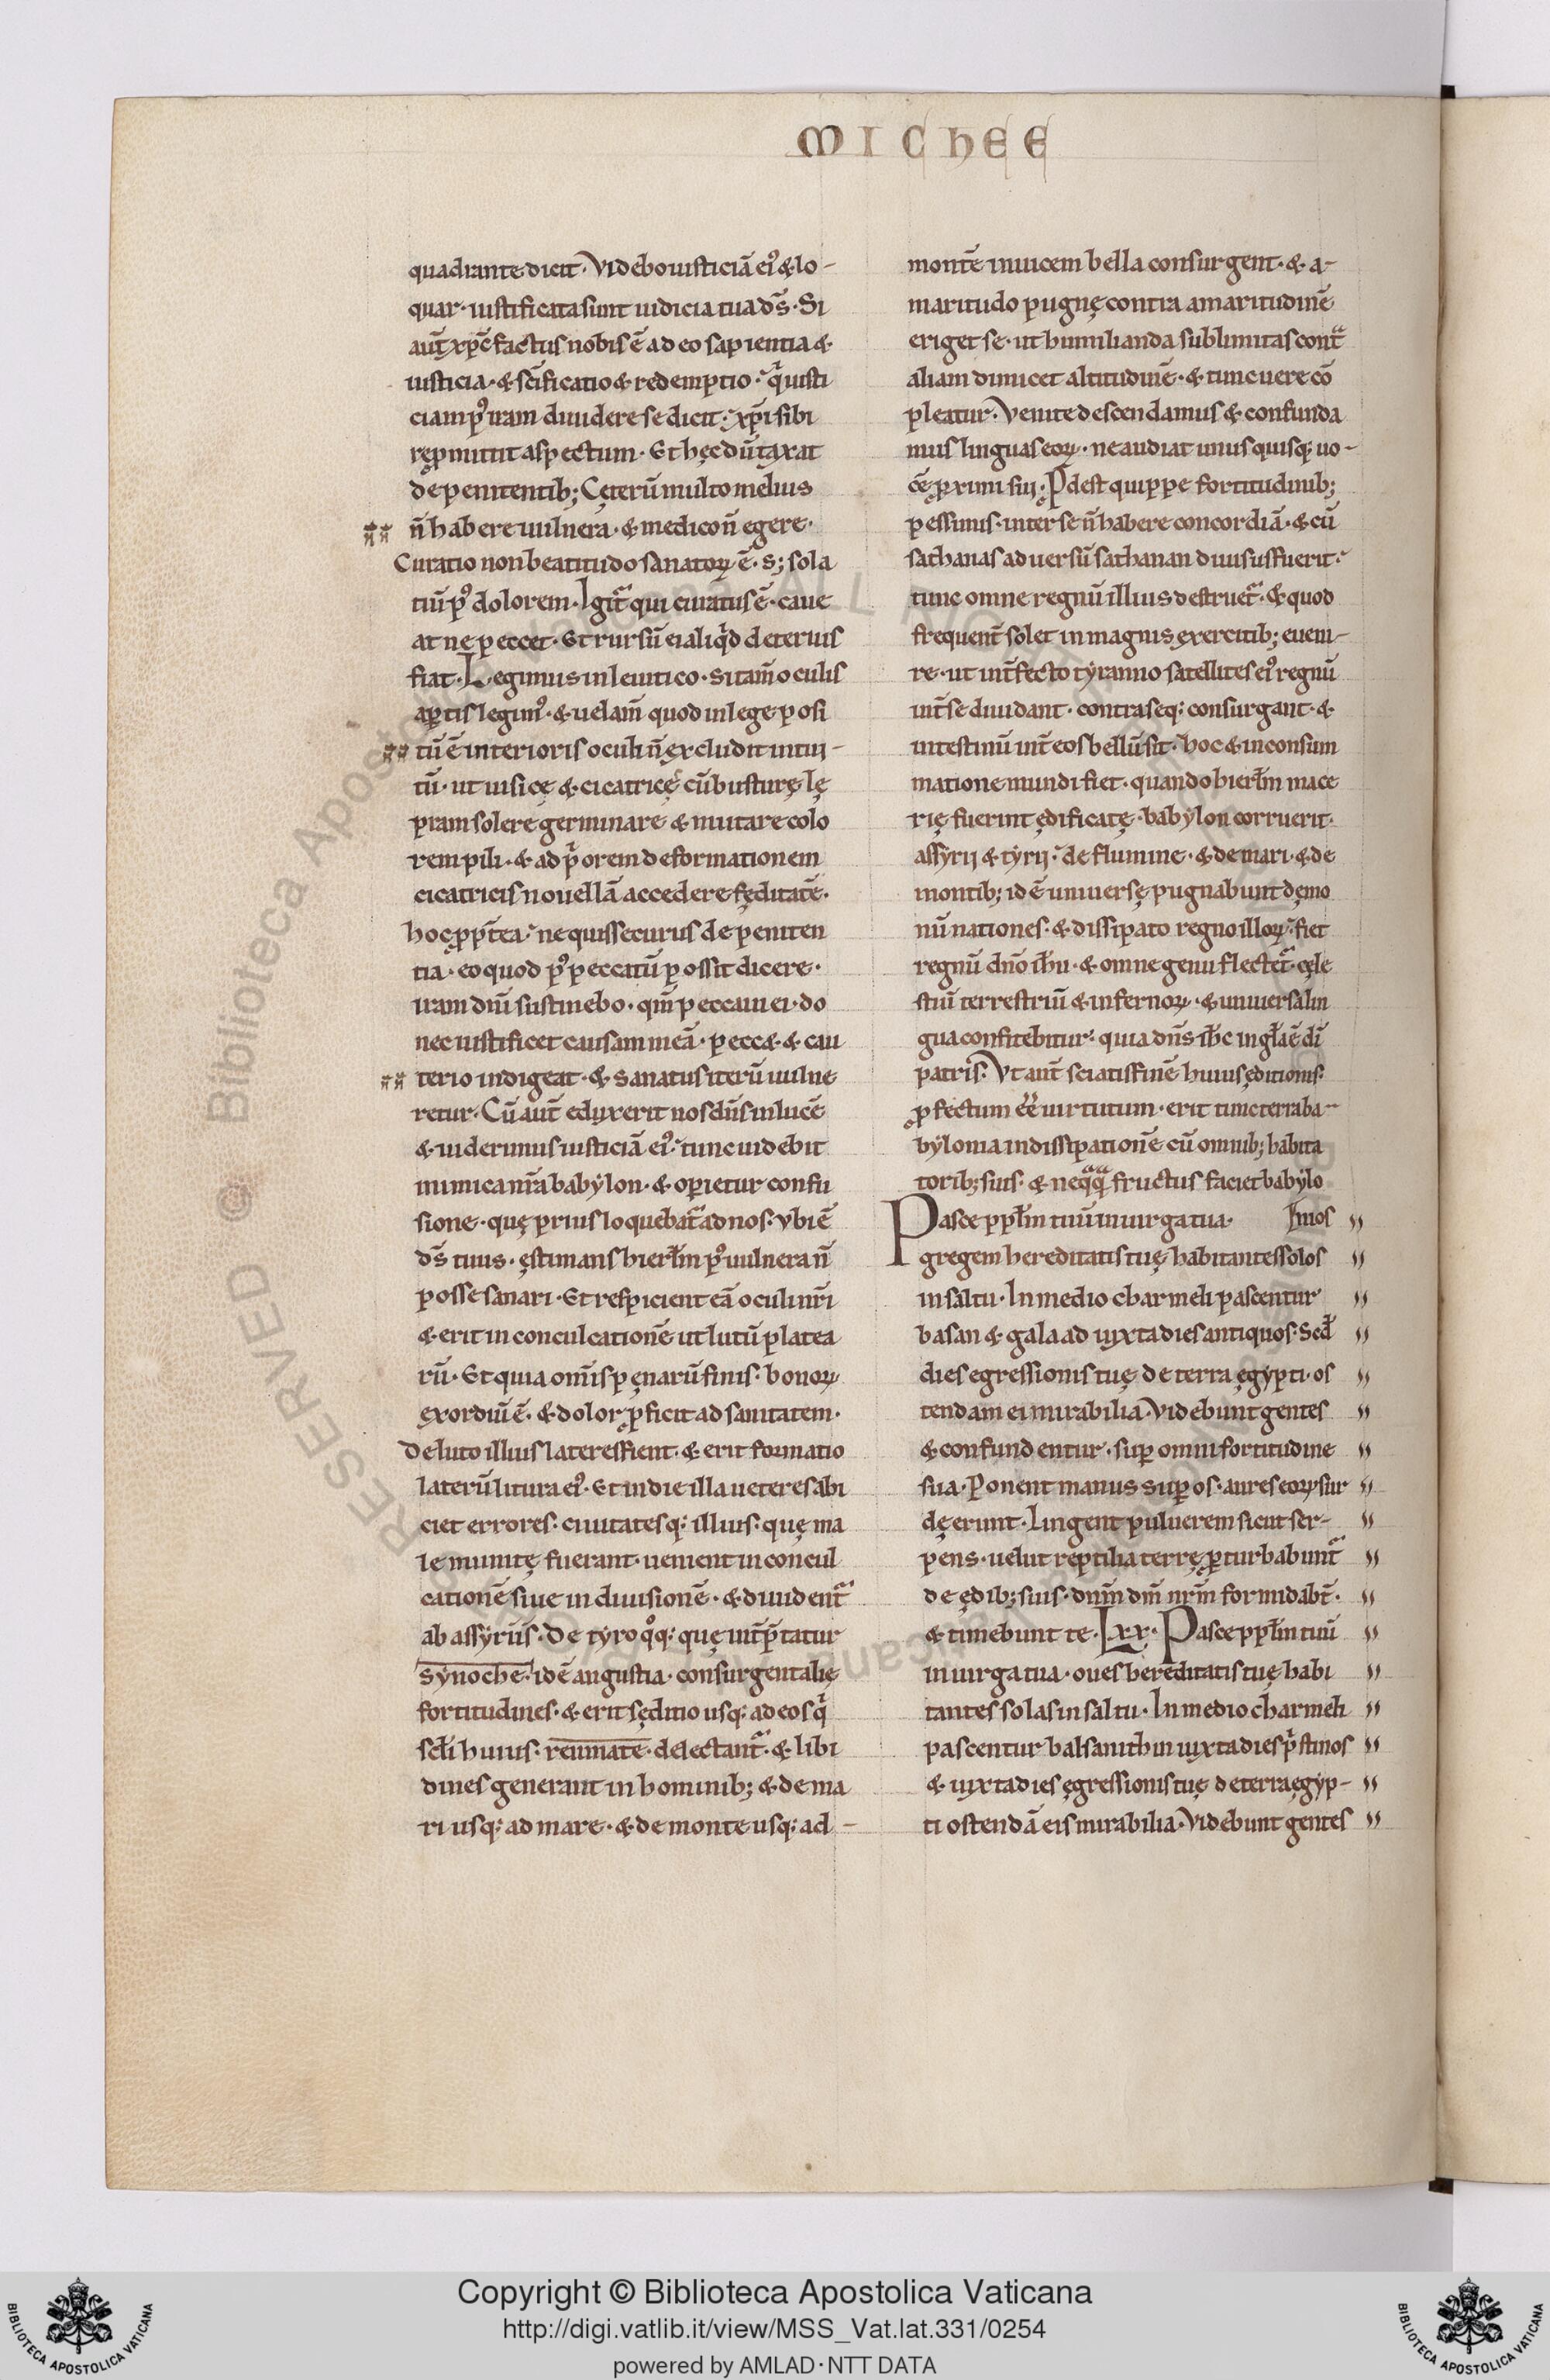 MICHEE
quadrante dicit. Videbo iusticiā ei᾽ & lo-
quar. iustificata sunt iudicia tua dс̄. Si
aut̄ xp̄c factus nobis ē a deo sapientia &
iusticia. & sc̄ificatio & redemptio. qͥ iusti
ciam p᾽ iram diuidere se dicit. xp̄i sibi
rep̱mittit aspectum. Et hęc dūtaxat
de penitentib; Cęterū multo melius
n̄ habere uulnera. & medico n̄ egere.
Curatio non beatitudo sanatoꝝ ē. s; sola
tiū p᾽ dolorem. Igit᷑ qui curatus ē. caue
at ne peccet. Et rursū ei aliqͥd deterius
fiat. Legimus in leuitico. si tam̄ oculis
ap̱tis legim᾽. & uelam̄ quod in lege posi
tū ē interioris oculi n̄ excludit intui-
tū. ut uisicę & cicatricę cūbusturę lę
pram solere germinare & mutare colo
rem pili. & ad pͥorem deformationem
cicatricis nouellā accedere fęditatē.
hoc ꝓpt̄ea. ne quis securus de peniten
tia. eo quod p᾽ peccatū possit dicere.
iram dn̄i sustinebo. qm̄ peccaui ei. do
nec iustificet causam meā. peccet. & cau
terio indigeat. & sanatus iterū uulne
retur. Cū aut̄ eduxerit nos dn̄s in lucē
& uiderimus iusticiā ei᾽. tunc uidebit
inimica nr̄a babylon. & op̱ietur confu
sione. quę prius loquebat᷑ ad nos. ubi ē
ds̄ tuus. ęstimans hierl̄m p᾽ uulnera n̄
posse sanari. Et respicient eā oculi nr̄i
& erit in conculcationē ut lutū platea
rū. Et quia om̄is pęnarū finis. bonoꝝ
exordiū ē. & dolor ꝓficit ad sanitatem.
De luto illius lateres fient. & erit formatio
laterū litura ei᾽. Et in die illa ueteres abi
ciet errores. ciuitatesq; illius. quę ma
le munitę fuerant. uenient in concul
cationē siue in diuisionē. & diuident᷑
ab assyriis. De tyro qͦq; quę int̄p̄tatur
synoche. idē angustia. consurgent alię
fortitudines. & erit sęditio usq; ad eos qͥ
scl̄i huius. reumate. delectant᷑. & libi
dines generant in hominib; & de ma
ri usq; ad mare. & de monte usq; ad-
montē inuicem bella consurgent. & a-
maritudo pugnę contra amaritudinē
eriget se. ut humilianda sublimitas cont̄
aliam dimicet altitudinē. & tunc uere cō
pleatur. Venite descendamus & confunda
mus linguas eoꝝ. ne audiat unusquisq; uo-
cē ꝓximi sui. Ꝓdest quippe fortitudinib;
pessimis. inter se n̄ habere concordiā. & cū
sathanas aduersū sathanan diuisus fuerit.
tunc omne regnū illius destruet᷑. & quod
frequent̄ solet in magnis exercitib; eueni-
re. ut int̄fecto tyranno satellites ei᾽ regnū
int̄ se diuidant. contra seq; consurgant. &
intestinū int̄ eos bellū sit. hoc & in consum
matione mundi fiet. quando hierl̄m mace
rię fuerint ędificatę. babylon corruerit.
assyrii & tyrii. de flumine. & de mari. & de
montib; idē uniuersę pugnabunt dęmo
nū nationes. & dissipato regno illoꝝ. fiet
regnū dn̄o ih̄u. & omne genu flectet᷑. cęle
stiū terrestriū & infernoꝝ. & uniuersa lin
gua confitebitur. quia dn̄s ih̄c in gl̄a ē di
patris. Ut aut̄ sciatis finē huius ęditionis.
ꝓfectum ēē uirtutum. erit tunc terra ba-
bylonia in dissipationē cū omnib; habita
torib; suis. & neqͣqͣ fructus faciet babylo
Pasce ppl̄m tuū in uirga tua. nios
gregem hereditatis tuę habitantes solos
in saltu. In medio charmeli pascentur
basan & galaad iuxta dies antiquos. Scd̄
dies egressionis tuę de terra ęgypti. os
tendam ei mirabilia. Videbunt gentes
& confundentur. sup̱ omni fortitudine
sua. Ponent manus sup̱ os. aures eoꝝ sur
dę erunt. Lingent puluerem sicut ser-
pens. uelut reptilia terrę p̱turbabunt᷑
de ędib; suis. dnm̄ dm̄ nrm̄ formidabt̄.
& timebunt te. Lxx. Pasce ppl̄m tuū
in uirga tua. oues hereditatis tuę habi
tantes solas in saltu. In medio charmeli
pascentur balsanithin iuxta dies pͥstinos
& iuxta dies ęgressionis tuę de terra ęgyp-
ti ostendā eis mirabilia. Videbunt gentes
Copyright © Biblioteca Apostolica Vaticana
http://digi.vatlib.it/view/MSS_Vat.lat.331/0254
powered by AMLAD·NTT DATA